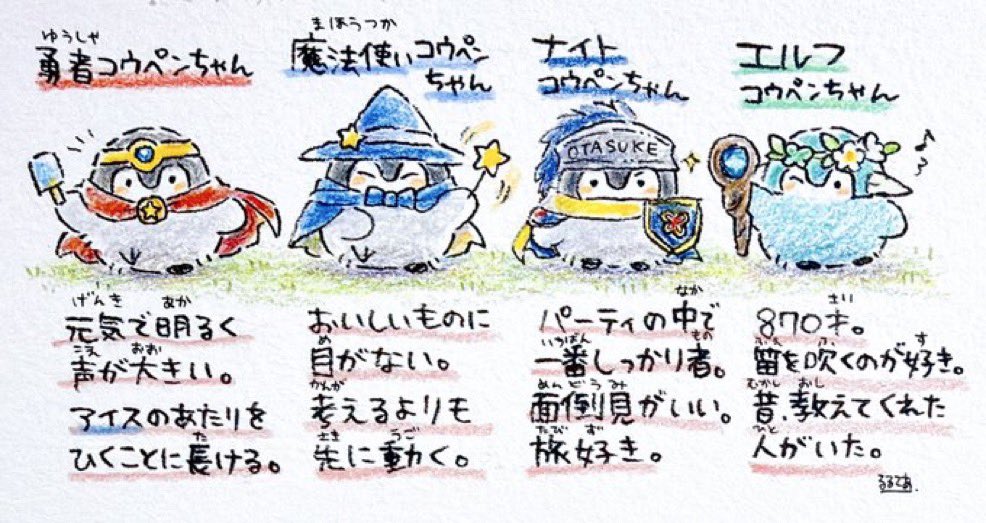 ゆうしゃ
勇者コウペンちゃん
まほうつか
魔法使いコウペン
ちゃん
ナイト
コウペンちゃん
エルフ
コウペンちゃん
OTASUKE
げんき あか
元気で明るく
こえ おお
声が大きい。
アイスのあたりを
た
ひくことに長ける。
おいしいものに
め
目がない。
かんが
考えるよりも
さき うご
先に動く。
なか
パーティの中で
いちばん もの
一番しっかり者。
めんどうみ
面倒見がいい。
たび ず
旅好き。
さい
870才。
ふえ ふ す
笛を吹くのが好き。
むかし おし
昔、教えてくれた
ひと
人がいた。
るるてあ.